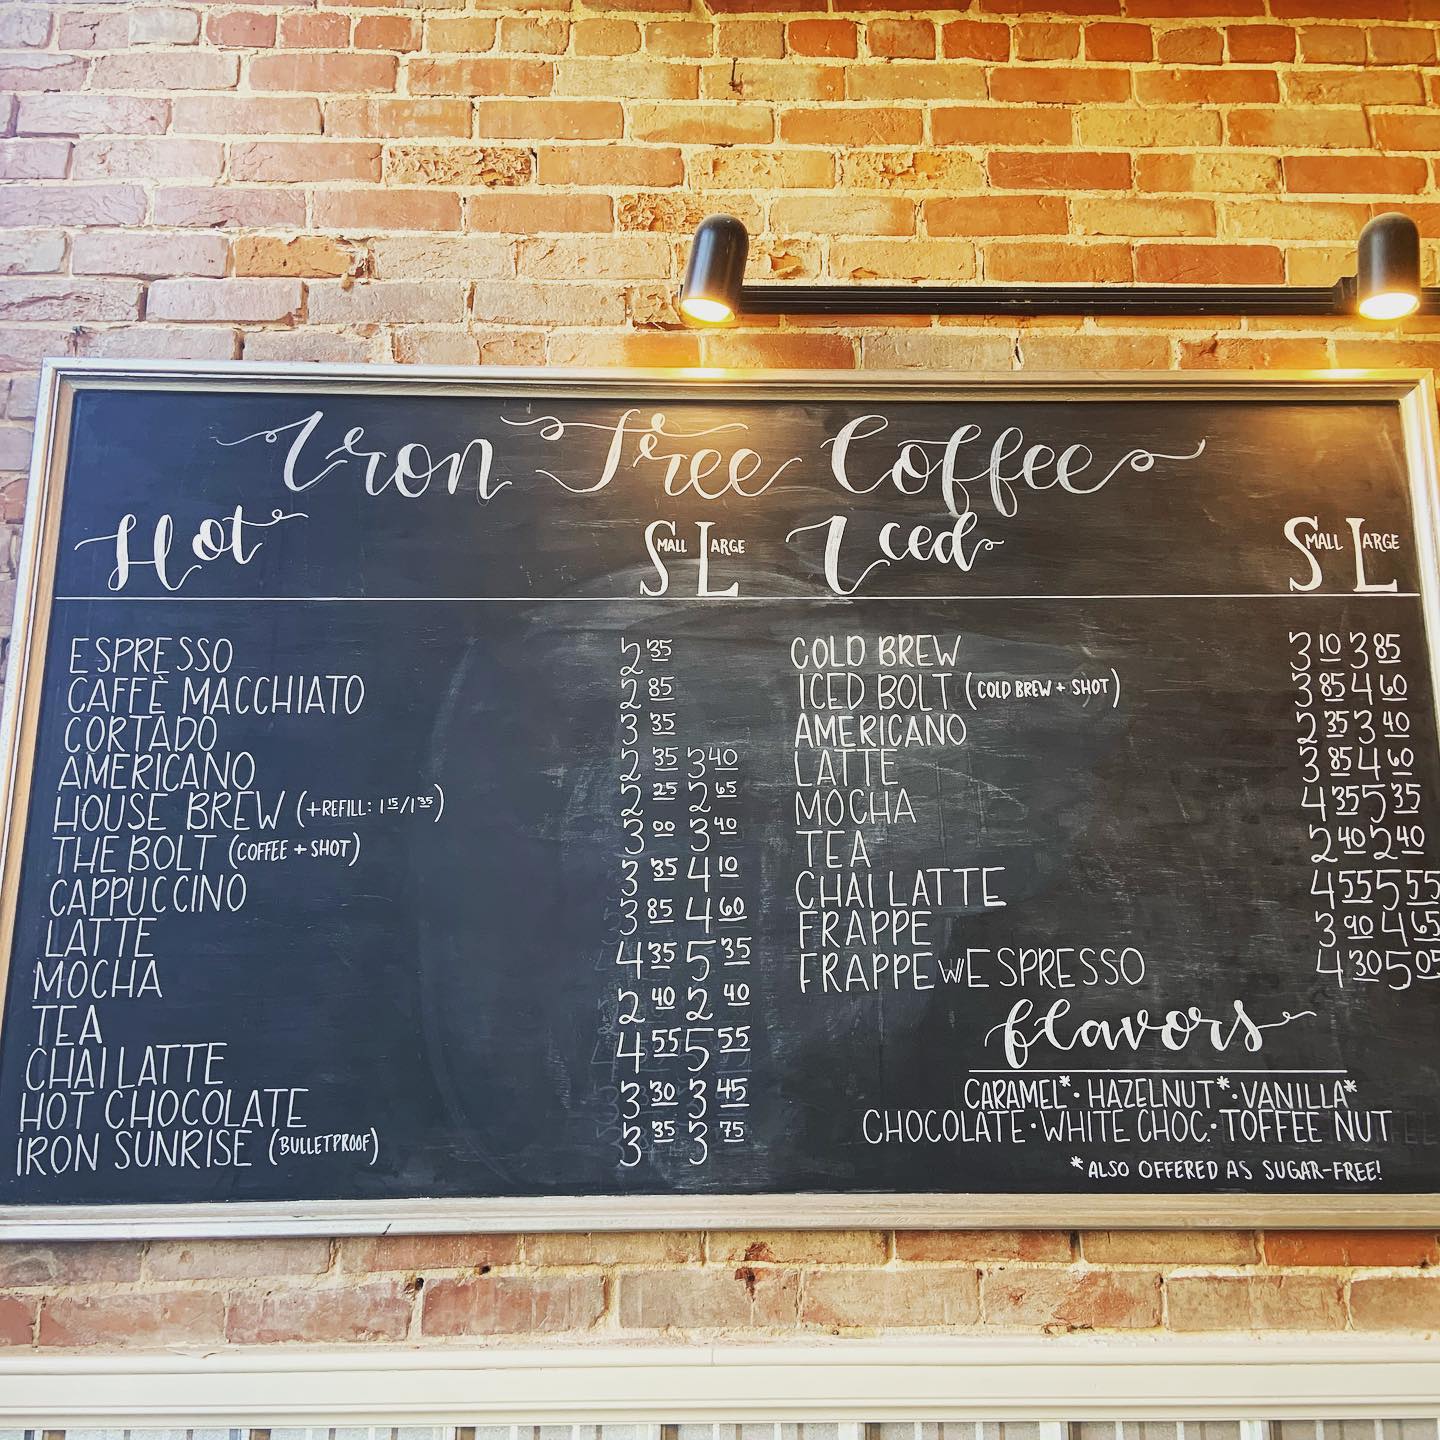 Iron Tree Coffee
Hot SMALL LARGE
ESPRESSO 2 35
CAFFÈ MACCHIATO 2 85
CORTADO 3 35
AMERICANO 2 35 3 40
HOUSE BREW (+REFILL: 1 15/1 35) 2 25 2 65
THE BOLT (COFFEE + SHOT) 3 00 3 40
CAPPUCCINO 3 35 4 10
LATTE 3 85 4 60
MOCHA 4 35 5 35
TEA 2 40 2 40
CHAI LATTE 4 55 5 55
HOT CHOCOLATE 3 30 3 45
IRON SUNRISE (BULLETPROOF) 3 35 3 75
Iced SMALL LARGE
COLD BREW 3 10 3 85
ICED BOLT (COLD BREW + SHOT) 3 85 4 60
AMERICANO 2 35 3 40
LATTE 3 85 4 60
MOCHA 4 35 5 35
TEA 2 40 2 40
CHAI LATTE 4 55 5 55
FRAPPE 3 90 4 65
FRAPPE W/ ESPRESSO 4 30 5 05
flavors
CARAMEL* · HAZELNUT* · VANILLA*
CHOCOLATE · WHITE CHOC. · TOFFEE NUT
*ALSO OFFERED AS SUGAR-FREE!